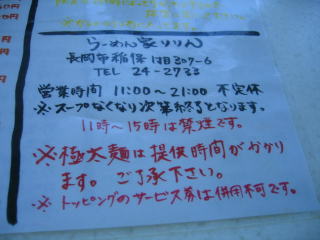 らーめん家りりん
長岡市稲保4丁目307-6
TEL 24-2733
営業時間 11:00〜21:00 不定休
※スープなくなり次第終了となります。
11時〜15時は禁煙です。
※極太麺は提供時間がかかり
ます。ご了承下さい。
※トッピングのサービス券は併用不可です。